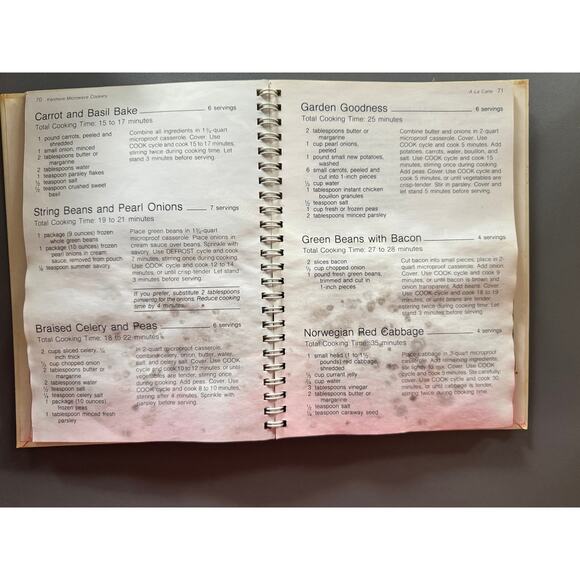 70 Kenmore Microwave Cookery
Carrot and Basil Bake 6 servings
Total Cooking Time: 15 to 17 minutes
1 pound carrots, peeled and
shredded
1 small onion, minced
2 tablespoons butter or
margarine
2 tablespoons water
1 teaspoon parsley flakes
½ teaspoon salt
½ teaspoon crushed sweet
basil
Combine all ingredients in 1½-quart
microproof casserole. Cover. Use
COOK cycle and cook 15 to 17 minutes,
stirring twice during cooking time. Let
stand 3 minutes before serving.
String Beans and Pearl Onions 7 servings
Total Cooking Time: 19 to 21 minutes
1 package (9 ounces) frozen
whole green beans
1 package (10 ounces) frozen
pearl onions in cream
sauce, removed from pouch
¼ teaspoon summer savory
Place green beans in 1½-quart
microproof casserole. Place onions in
cream sauce over beans. Sprinkle with
savory. Use DEFROST cycle and cook
7 minutes, stirring once during cooking.
Use COOK cycle and cook 12 to 14
minutes, or until crisp-tender. Let stand
3 minutes before serving.
If you prefer, substitute 2 tablespoons
pimiento for the onions. Reduce cooking
time by 4 minutes.
Braised Celery and Peas 6 servings
Total Cooking Time: 18 to 22 minutes
2 cups sliced celery,
inch thick
⅓ cup chopped onion
2 tablespoons butter or
margarine
2 tablespoons water
½ teaspoon salt
¼ teaspoon celery salt
1 package (10 ounces)
frozen peas
1 tablespoon minced fresh
parsley
In 2-quart microproof casserole,
combine celery, onion, butter, water,
salt and celery salt. Cover. Use COOK
cycle and cook 10 to 12 minutes, or until
vegetables are tender, stirring once
during cooking. Add peas. Cover. Use
COOK cycle and cook 8 to 10 minutes,
stirring after 4 minutes. Sprinkle with
parsley before serving.
A La Carte 71
Garden Goodness 6 servings
Total Cooking Time: 25 minutes
2 tablespoons butter or
margarine
1 cup pearl onions,
peeled
1 pound small new potatoes,
washed
6 small carrots, peeled and
cut into 1-inch pieces
½ cup water
1 tablespoon instant chicken
bouillon granules
½ teaspoon salt
1 cup fresh or frozen peas
2 tablespoons minced parsley
Combine butter and onions in 2-quart
microproof casserole. Cover. Use
COOK cycle and cook 5 minutes. Add
potatoes, carrots, water, bouillon, and
salt. Use COOK cycle and cook 15
minutes, stirring once during cooking.
Add peas. Cover. Use COOK cycle and
cook 5 minutes, or until vegetables are
crisp-tender. Stir in parsley. Cover and
let stand 5 minutes before serving.
Green Beans with Bacon 4 servings
Total Cooking Time: 27 to 28 minutes
2 slices bacon
⅓ cup chopped onion
1 pound fresh green beans,
trimmed and cut in
1-inch pieces
Cut bacon into small pieces; place in 2-
quart microproof casserole. Add onion.
Cover. Use COOK cycle and cook 9
minutes, or until bacon is brown and
onion transparent. Add beans. Cover.
Use COOK cycle and cook 18 to 19
minutes, or until beans are tender,
stirring twice during cooking time. Let
stand 3 minutes before serving.
Norwegian Red Cabbage 4 servings
Total Cooking Time: 35 minutes
1 small head (1 to 1½
pounds) red cabbage,
shredded
⅓ cup currant jelly
¼ cup water
3 tablespoons vinegar
2 tablespoons butter or
margarine
1 teaspoon salt
½ teaspoon caraway seed
Place cabbage in 3-quart microproof
casserole. Add remaining ingredients;
stir lightly to mix. Cover. Use COOK
cycle and cook 5 minutes. Stir carefully.
Cover. Use COOK cycle and cook 30
minutes, or until cabbage is tender,
stirring twice during cooking time.